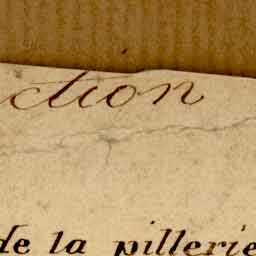 ction
de la pillerie